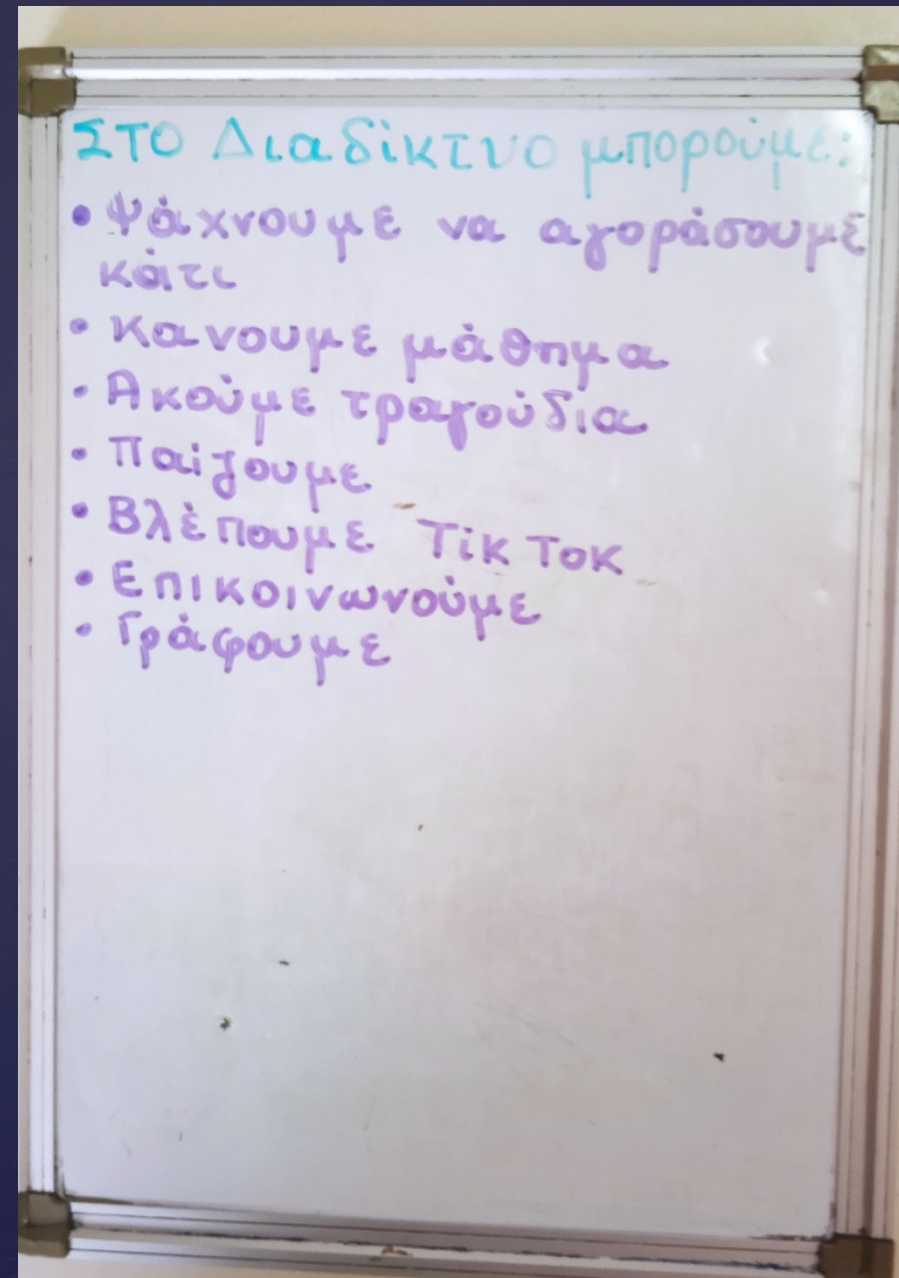 ΣΤΟ Διαδίκτυο μπορούμε:
• Ψάχνουμε να αγοράσουμε
κάτι
• Κανουμε μάθημα
• Ακούμε τραγούδια
• Παίζουμε
• Βλέπουμε Τίκ Τοκ
• Επικοινωνούμε
• Γράφουμε